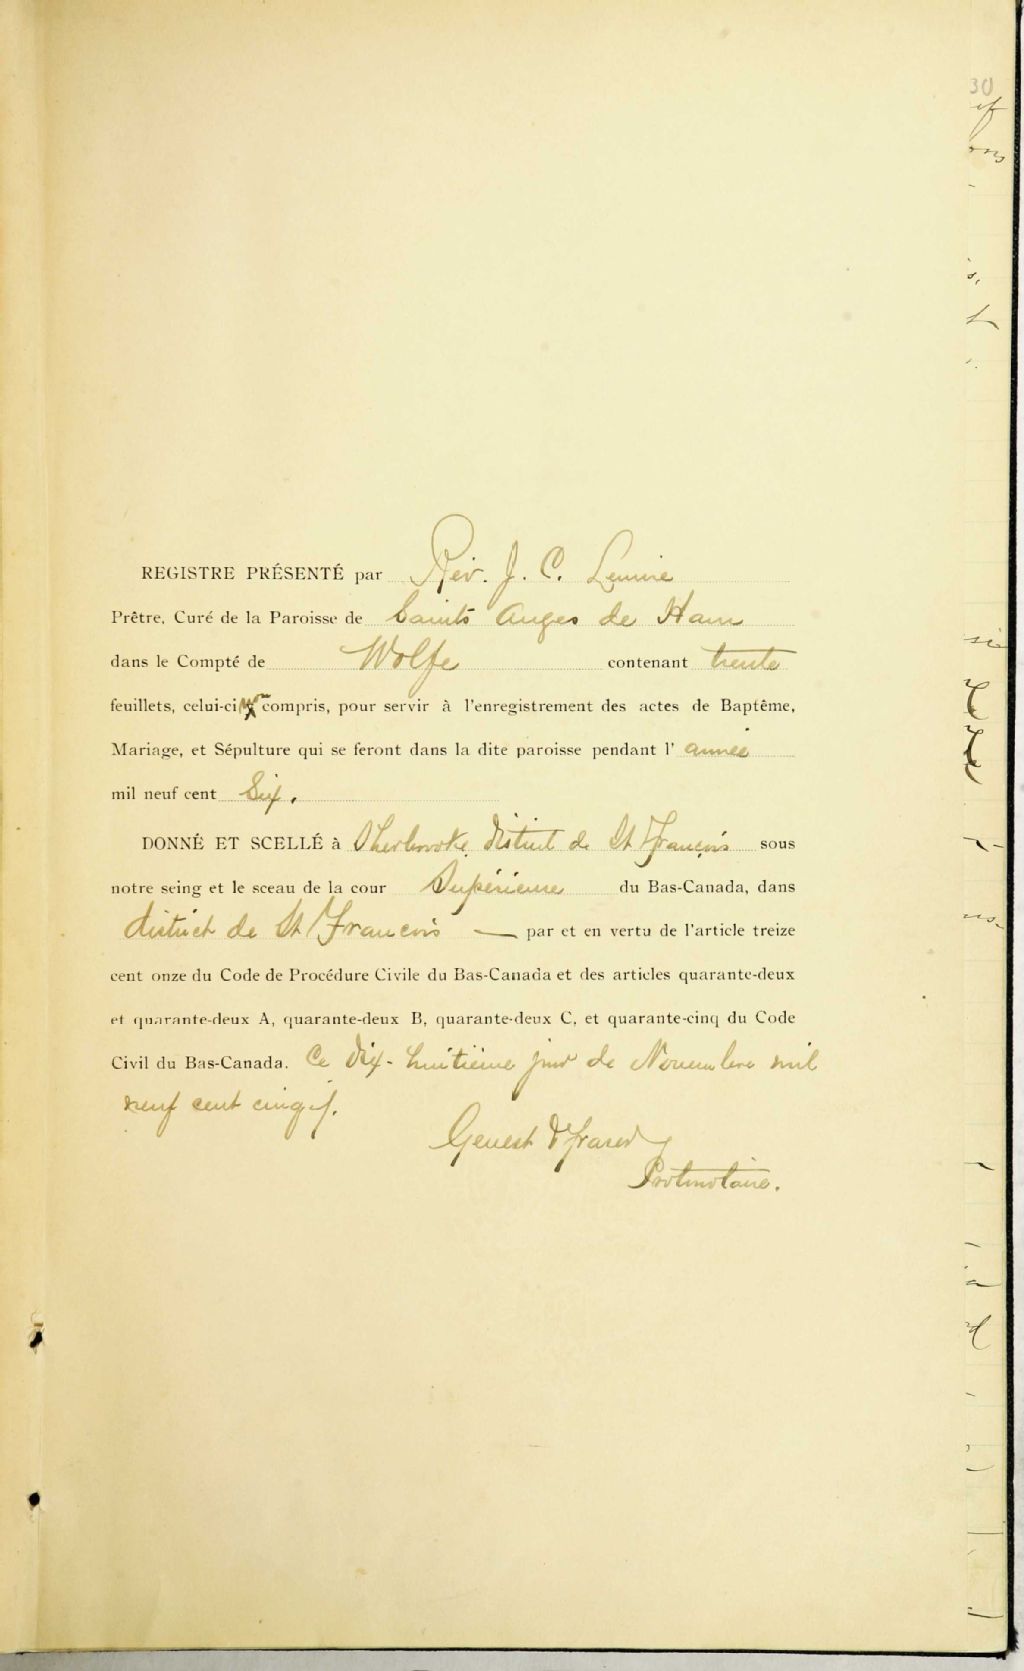 30
REGISTRE PRÉSENTÉ par Rév. J. C. Lemire
Prêtre, Curé de la Paroisse de Saints Anges de Ham
dans le Compté de Wolfe contenant trente
feuillets, celui-ci non compris, pour servir à l'enregistrement des actes de Baptême,
Mariage, et Sépulture qui se feront dans la dite paroisse pendant l' année
mil neuf cent Six.
DONNÉ ET SCELLÉ à Sherbrooke, district de St François sous
notre seing et le sceau de la cour Supérieure du Bas-Canada, dans
district de St François — par et en vertu de l'article treize
cent onze du Code de Procédure Civile du Bas-Canada et des articles quarante-deux
et quarante-deux A, quarante-deux B, quarante-deux C, et quarante-cinq du Code
Civil du Bas-Canada. Ce dix-huitième jour de Novembre mil
neuf cent cinq.
Genest & Fraser
Protonotaire.